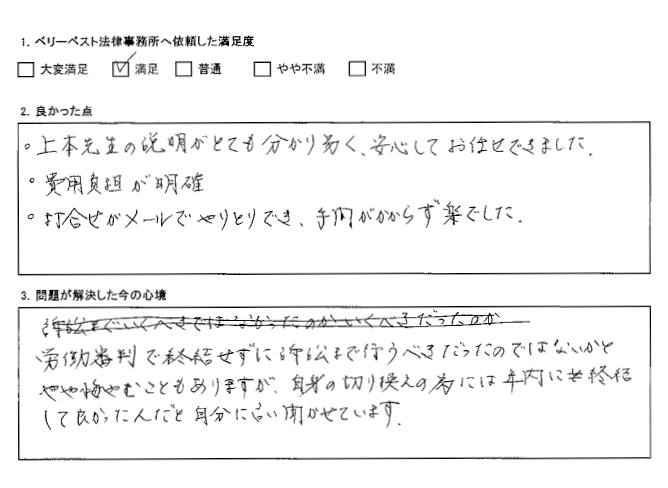 1. ベリーベスト法律事務所へ依頼した満足度
□ 大変満足 ☑ 満足 □ 普通 □ やや不満 □ 不満
2. 良かった点
。上本先生の説明がとても分かり易く、安心してお任せできました。
。費用負担が明確
。打合せがメールでやりとりでき、手間がかからず楽でした。
3. 問題が解決した今の心境
訴訟までいくべきではなかったのかいくべきだったのか
労働審判で終結せずに訴訟まで行うべきだったのではないかと
やや悔やむこともありますが、自身の切り換えの為には年内に終結
して良かったんだと自分に言い聞かせています。